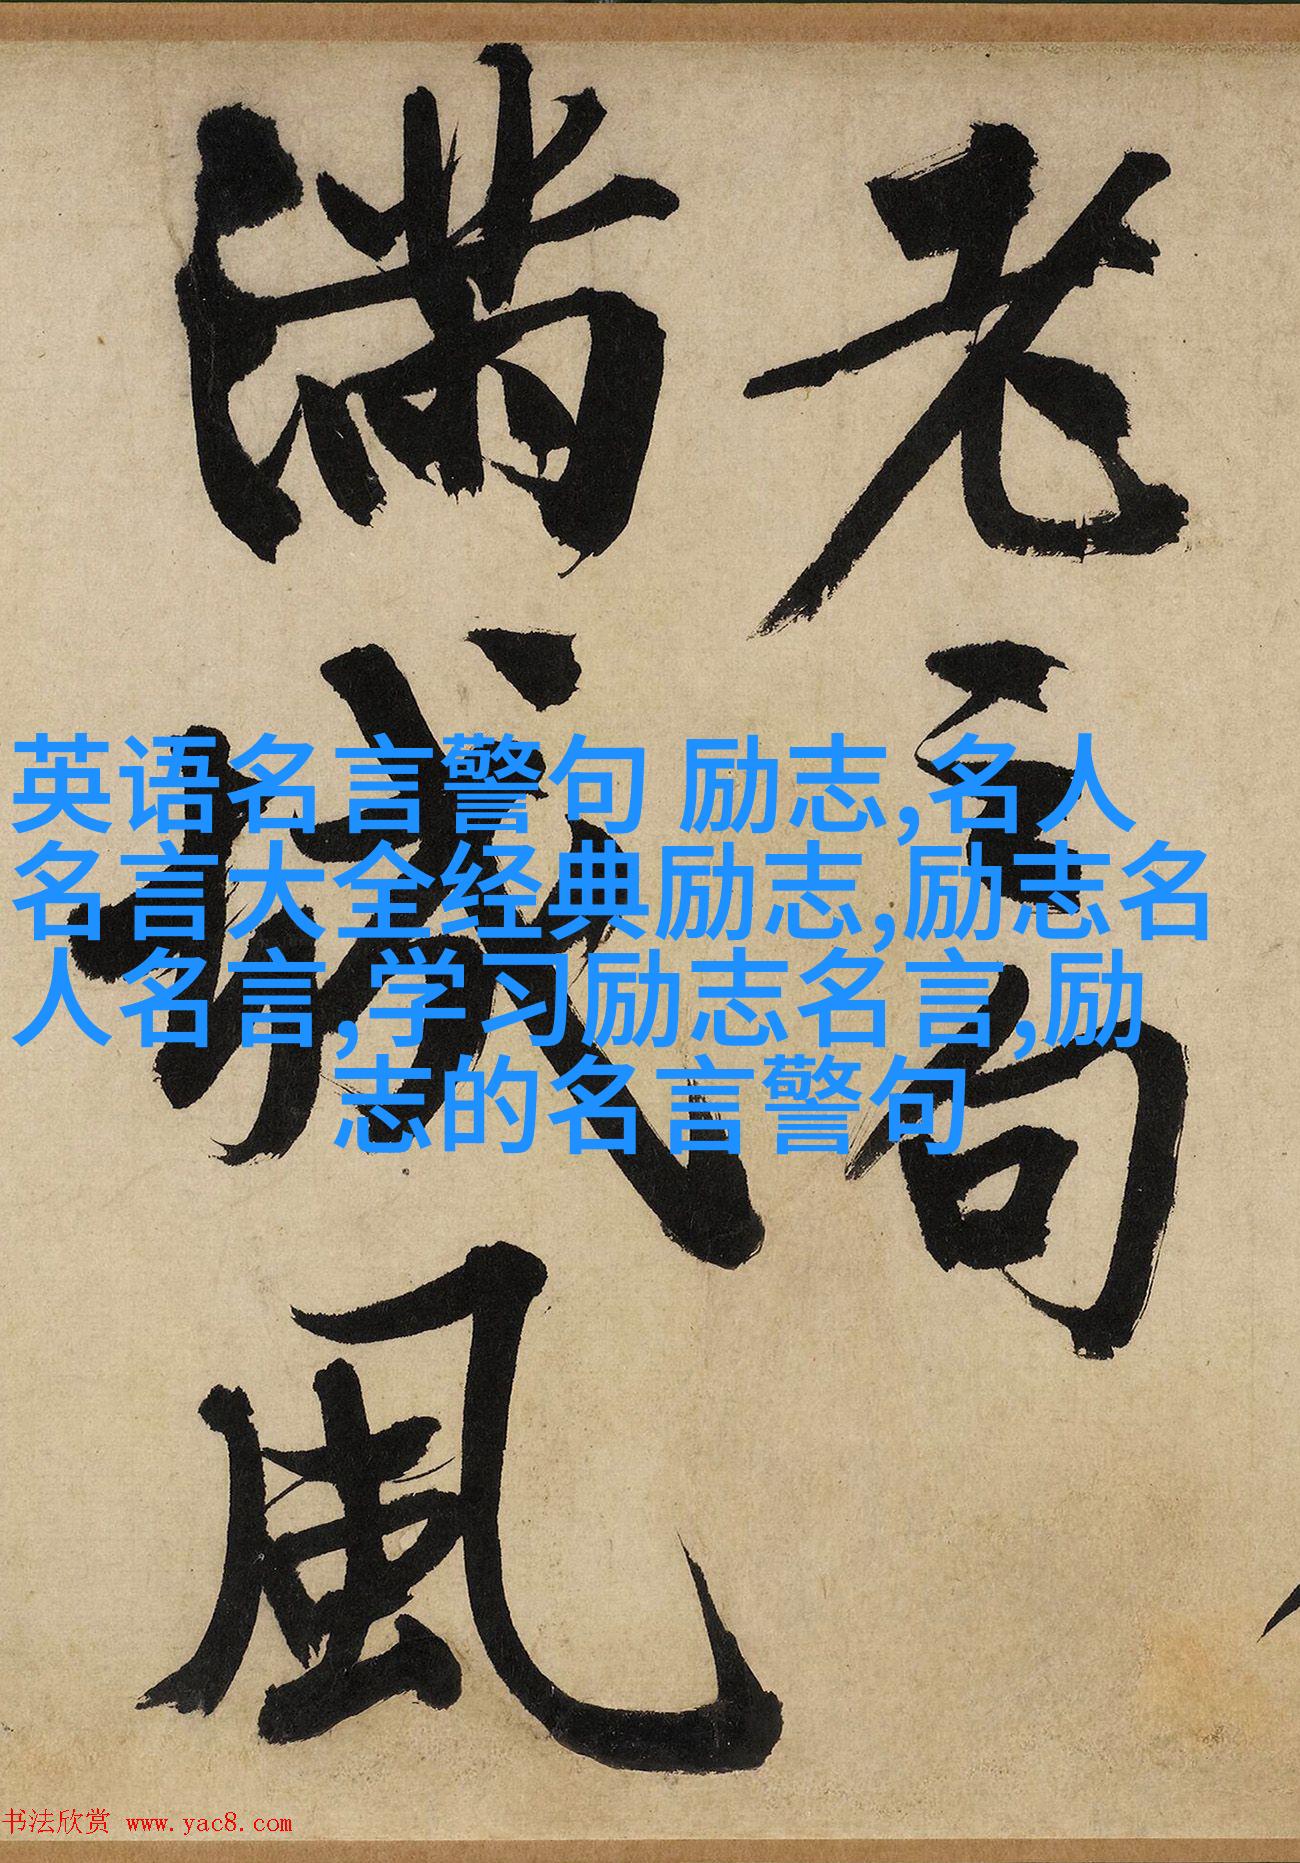 老句
滿城風
英语名言警句 励志,名人
名言大全经典励志,励志名
人名言,学习励志名言,励
志的名言警句
书法欣赏 www.yac8.com